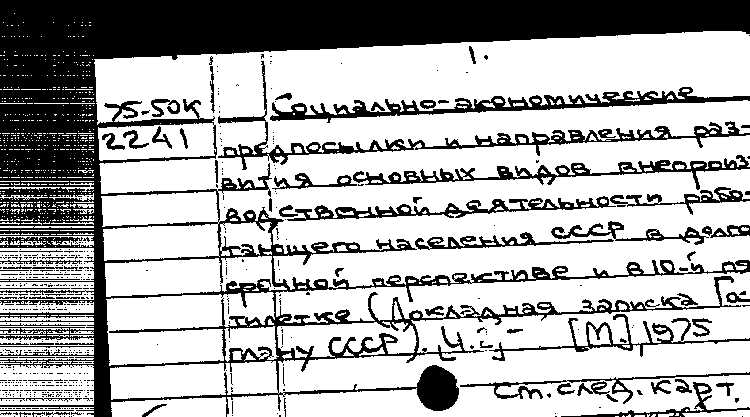 1.
75-50к Социально-экономические
2241 предпосылки и направления раз-
вития основных видов внепроиз
водственной деятельности рабо-
тающего населения СССР в долго
срочной перспективе и в 10-й пя
тилетке. (Докладная записка Гос
плану СССР). [Ч.2,- [М.], 1975
См. след. карт.